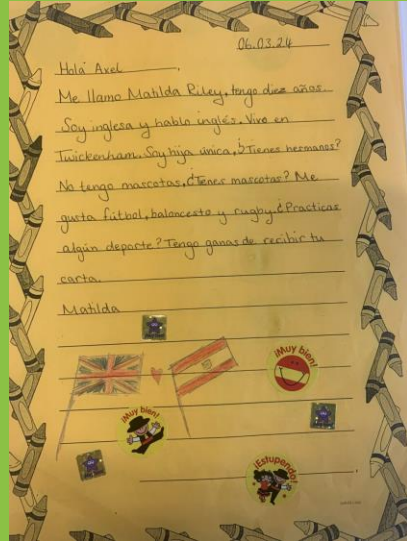 06.03.24
Hola Axel,
Me llamo Matilda Riley, tengo diez años.
Soy inglesa y hablo inglés. Vivo en
Twickenham. Soy hija única, ¿Tienes hermanos?
No tengo mascotas, ¿Tienes mascotas? Me
gusta fútbol, baloncesto y rugby ¿Practicas
algún deporte? Tengo ganas de recibir tu
carta.
Matilda
¡Muy bien!
¡Muy bien!
¡Estupendo!